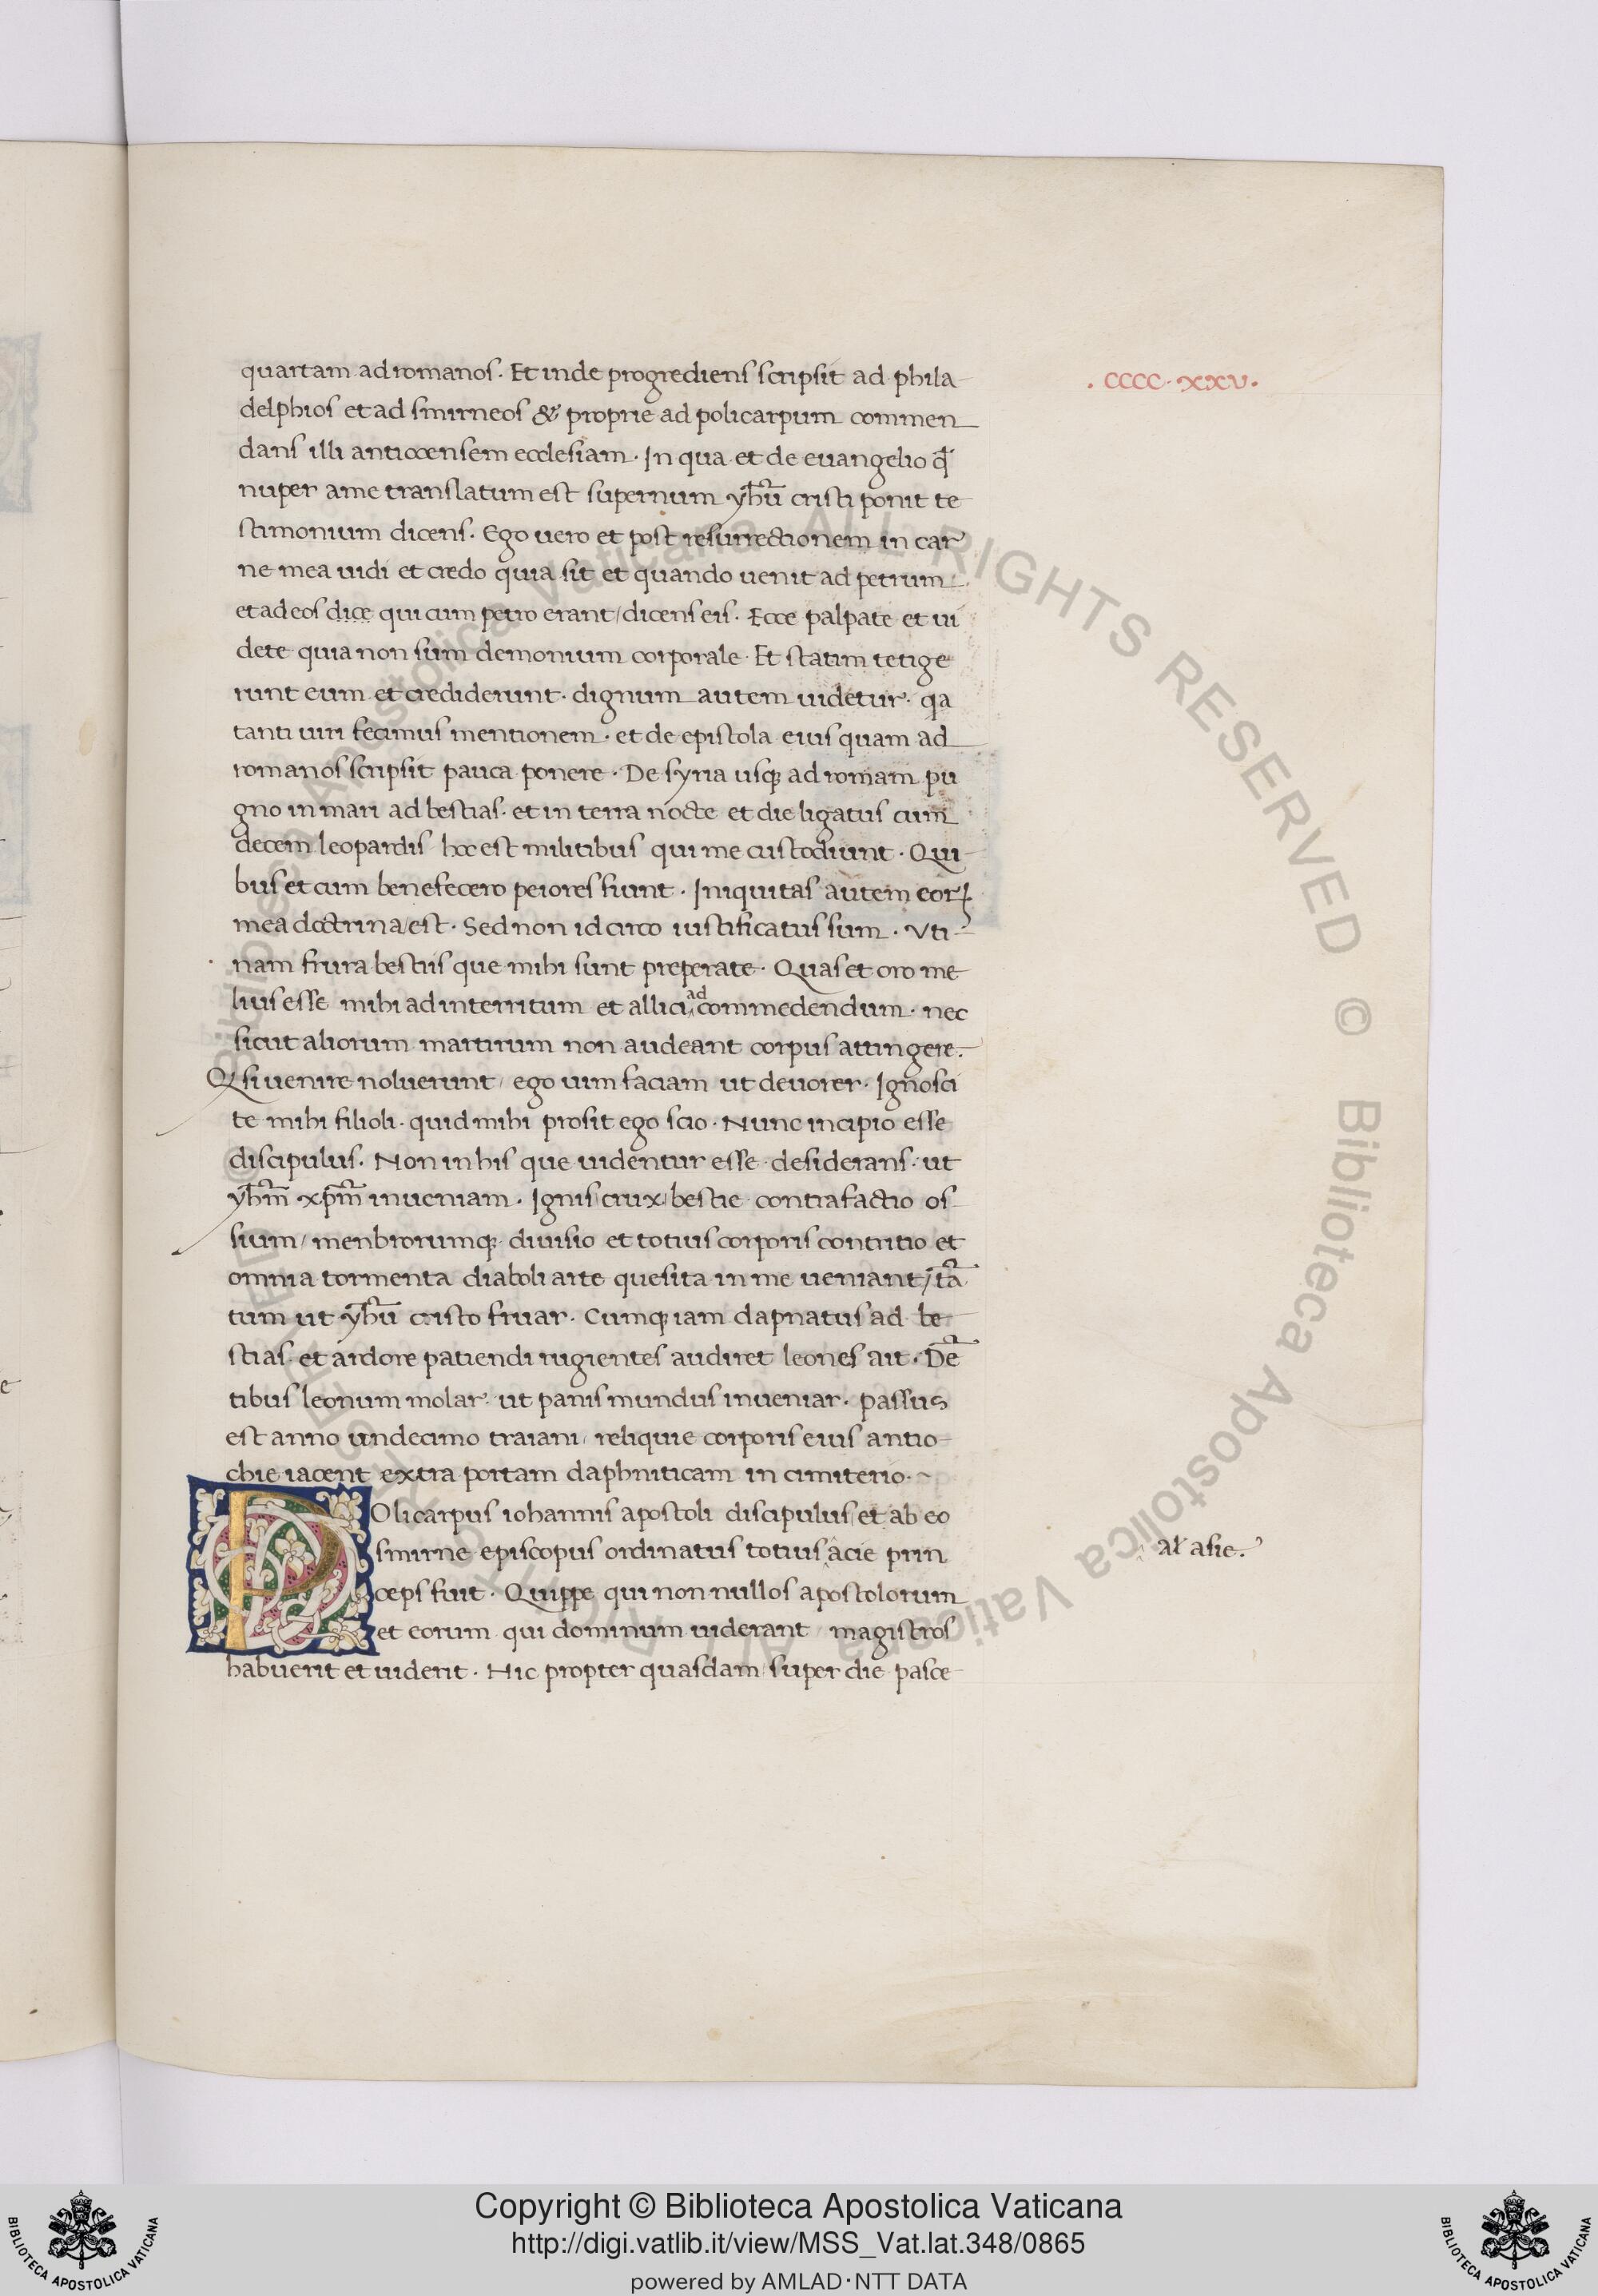 . CCCC . XXV .
quartam ad romanos . Et inde progrediens scripsit ad phila-
delphios et ad smirneos & proprie ad policarpum commen
dans illi antiocensem ecclesiam . In qua et de euangelio q̄
nuper ame translatum est supernum yh̄u cristi ponit te
stimonium dicens . Ego uero et post resurrectionem in car
ne mea uidi et credo quia sit et quando uenit ad petrum
et ad eos dice qui cum petro erant / dicens eis . Ecce palpate et ui
dete quia non sum demonium corporale . Et statim tetige
runt eum et crediderunt . dignum autem uidetur . qa
tanti uiri fecimus mentionem . et de epistola eius quam ad
romanos scripsit pauca ponere . De syria usq; ad romam pu
gno in mari ad bestias . et in terra nocte et die ligatus cum
decem leopardis hoc est militibus qui me custodiunt . Qui-
bus et cum benefecero peiores fiunt . Iniquitas autem eoꝝ
mea doctrina / est . Sed non id circo iustificatus sum . Vti-
nam frura bestiis que mihi sunt preperate . Quas et oro me
lius esse mihi ad interritum et allici ad commedendum . nec
sicut aliorum martirum non audeant corpus attingere .
Q si uenire noluerunt / ego uim faciam ut deuorer . Ignosci
te mihi filioli . quid mihi prosit ego scio . Nunc incipio esse
discipulus . Non in his que uidentur esse desiderans . ut
yh̄m xp̄m inueniam . Ignis / crux / bestie contrafactio os-
sium / menbrorumq; diuisio et totius corporis contritio et
omnia tormenta diaboli arte quesita in me ueniant / tā
tum ut yh̄u cristo fruar . Cumq; iam dapnatus ad be-
stias . et ardore patiendi rugientes audiret leones ait . Dē
tibus leonum molar . ut panis mundus inueniar . passus
est anno undecimo traiani / reliquie corporis eius antio-
chie iacent extra portam daphniticam in cimiterio . ~
POlicarpus iohannis apostoli discipulus / et ab eo
smirne episcopus ordinatus totius acie prin
ceps fuit . Quippe qui non nullos apostolorum
et eorum qui dominum uiderant / magistros
habuerit et uiderit . Hic propter quasdam / super die pasce-
al' asie .
ALL RIGHTS RESERVED © Biblioteca Apostolica Vaticana
Copyright © Biblioteca Apostolica Vaticana
http://digi.vatlib.it/view/MSS_Vat.lat.348/0865
powered by AMLAD·NTT DATA
BIBLIOTECA APOSTOLICA VATICANA
BIBLIOTECA APOSTOLICA VATICANA